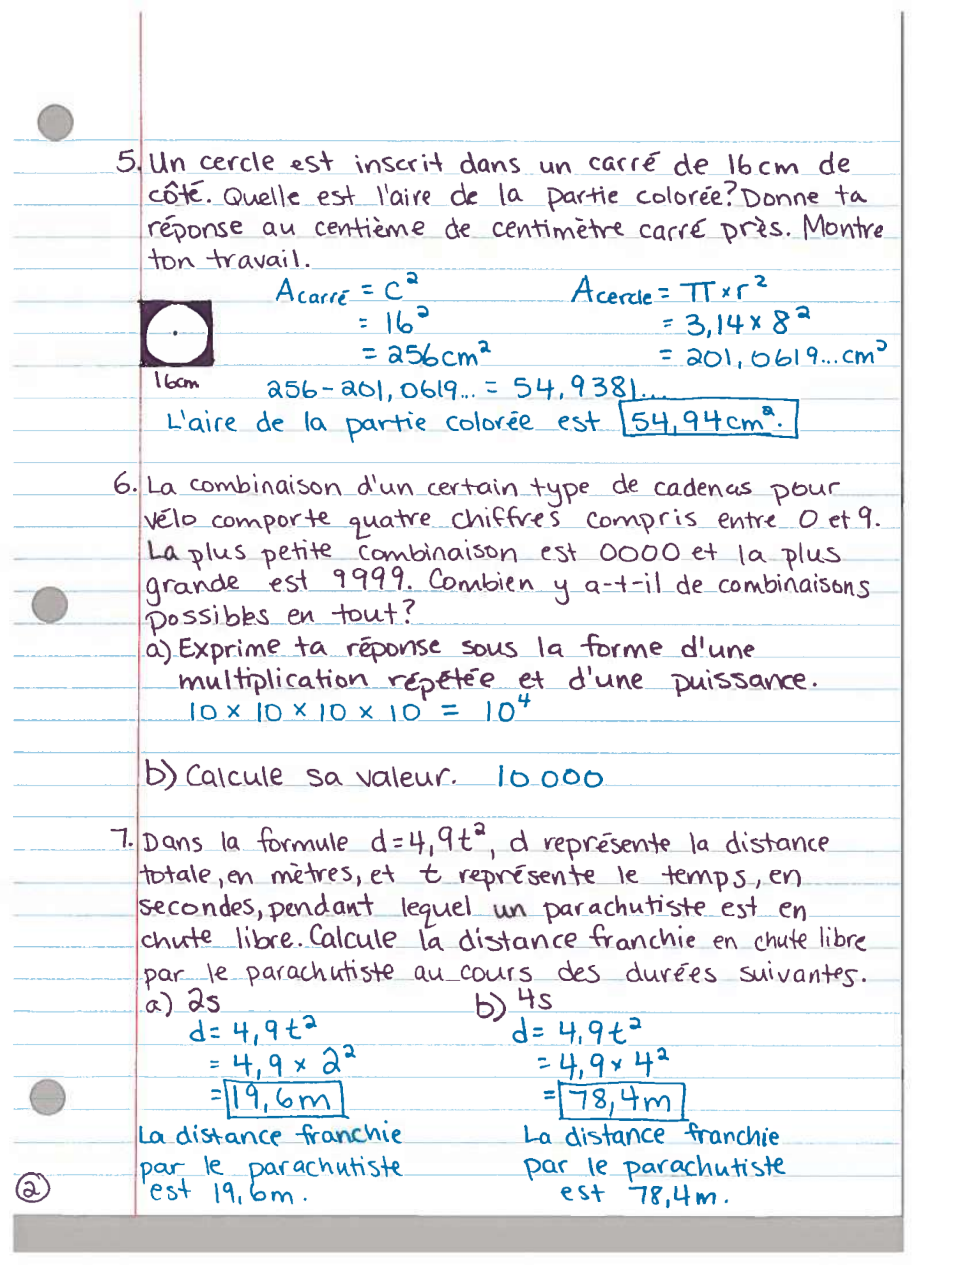 5. Un cercle est inscrit dans un carré de 16cm de
côté. Quelle est l'aire de la partie colorée? Donne ta
réponse au centième de centimètre carré près. Montre
ton travail.
Acarré = c²
= 16²
= 256cm²
Acercle = π × r²
= 3,14 × 8²
= 201,0619... cm²
16cm
256 - 201,0619... = 54,9381...
L'aire de la partie colorée est 54,94cm².
6. La combinaison d'un certain type de cadenas pour
vélo comporte quatre chiffres compris entre 0 et 9.
La plus petite combinaison est 0000 et la plus
grande est 9999. Combien y a-t-il de combinaisons
possibles en tout?
a) Exprime ta réponse sous la forme d'une
multiplication répétée et d'une puissance.
10 × 10 × 10 × 10 = 10⁴
b) Calcule sa valeur. 10 000
7. Dans la formule d=4,9t², d représente la distance
totale, en mètres, et t représente le temps, en
secondes, pendant lequel un parachutiste est en
chute libre. Calcule la distance franchie en chute libre
par le parachutiste au cours des durées suivantes.
a) 2s
d= 4,9t²
= 4,9 × 2²
= 19,6m
La distance franchie
par le parachutiste
est 19,6m.
b) 4s
d= 4,9t²
= 4,9 × 4²
= 78,4m
La distance franchie
par le parachutiste
est 78,4m.
2